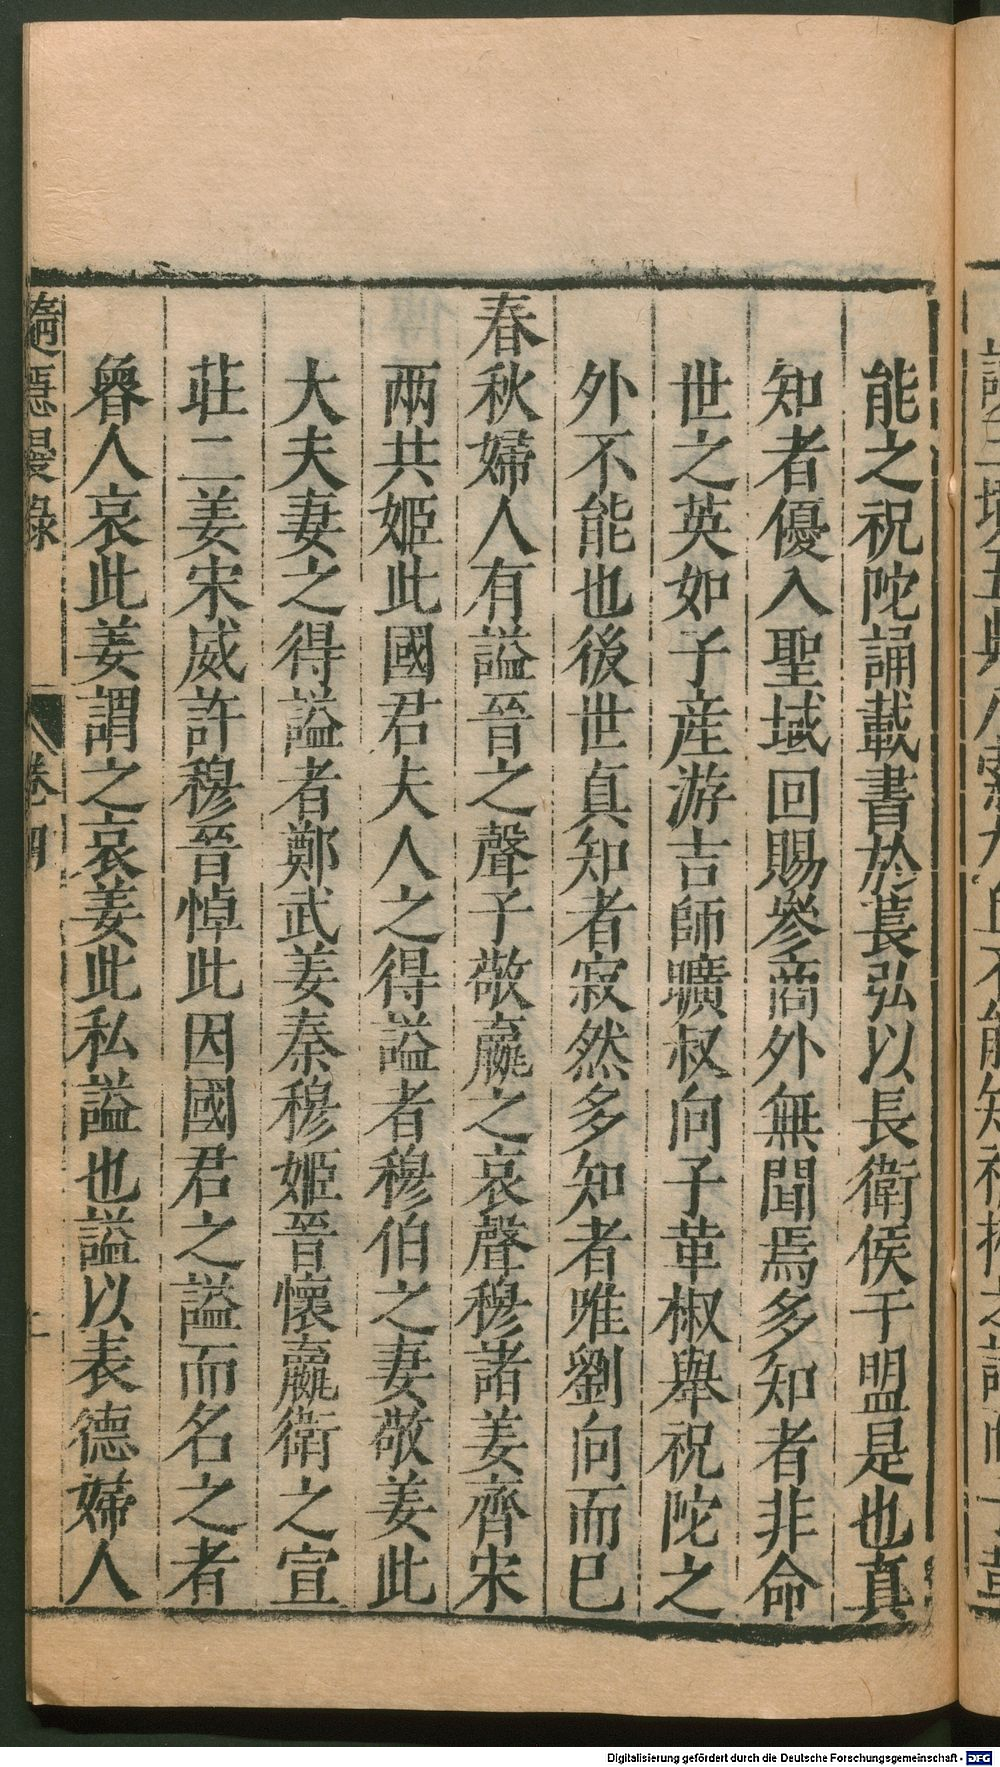 能之祝陀誦載書於萇弘以長衛侯于盟是也真
知者優入聖域回賜參商外無聞焉多知者非命
世之英如子産游吉師曠叔向子革椒舉祝陀之
外不能也後世真知者寂然多知者唯劉向而已
春秋婦人有謚晉之聲子敬嬴之哀聲穆諸姜齊宋
兩共姬此國君夫人之得謚者穆伯之妻敬姜此
大夫妻之得謚者鄭武姜秦穆姬晉懷嬴衛之宣
莊二姜宋威許穆晉悼此因國君之謚而名之者
魯人哀此姜謂之哀姜此私謚也謚以表德婦人
卷四
Digitalisierung gefördert durch die Deutsche Forschungsgemeinschaft - DFG